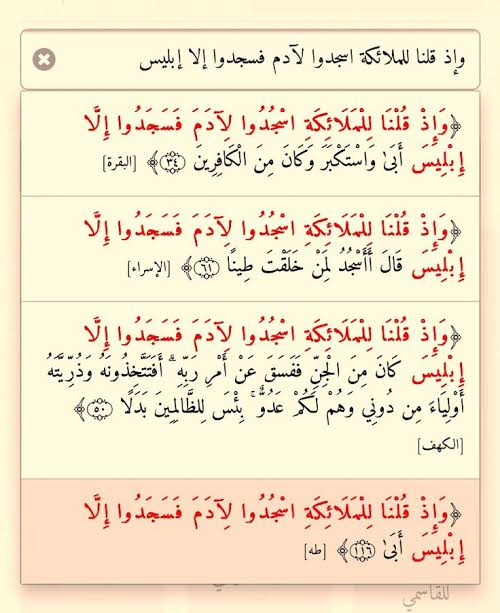 وإذ قلنا للملائكة اسجدوا لآدم فسجدوا إلا إبليس
﴿وَإِذْ قُلْنَا لِلْمَلَائِكَةِ اسْجُدُوا لِآدَمَ فَسَجَدُوا إِلَّا
إِبْلِيسَ أَبَىٰ وَاسْتَكْبَرَ وَكَانَ مِنَ الْكَافِرِينَ ۝٣٤﴾ [البقرة]
﴿وَإِذْ قُلْنَا لِلْمَلَائِكَةِ اسْجُدُوا لِآدَمَ فَسَجَدُوا إِلَّا
إِبْلِيسَ قَالَ أَأَسْجُدُ لِمَنْ خَلَقْتَ طِينًا ۝٦١﴾ [الإسراء]
﴿وَإِذْ قُلْنَا لِلْمَلَائِكَةِ اسْجُدُوا لِآدَمَ فَسَجَدُوا إِلَّا
إِبْلِيسَ كَانَ مِنَ الْجِنِّ فَفَسَقَ عَنْ أَمْرِ رَبِّهِ ۗ أَفَتَتَّخِذُونَهُ وَذُرِّيَّتَهُ
أَوْلِيَاءَ مِن دُونِي وَهُمْ لَكُمْ عَدُوٌّ ۚ بِئْسَ لِلظَّالِمِينَ بَدَلًا ۝٥٠﴾
[الكهف]
﴿وَإِذْ قُلْنَا لِلْمَلَائِكَةِ اسْجُدُوا لِآدَمَ فَسَجَدُوا إِلَّا
إِبْلِيسَ أَبَىٰ ۝١١٦﴾ [طه]
للقاسمي